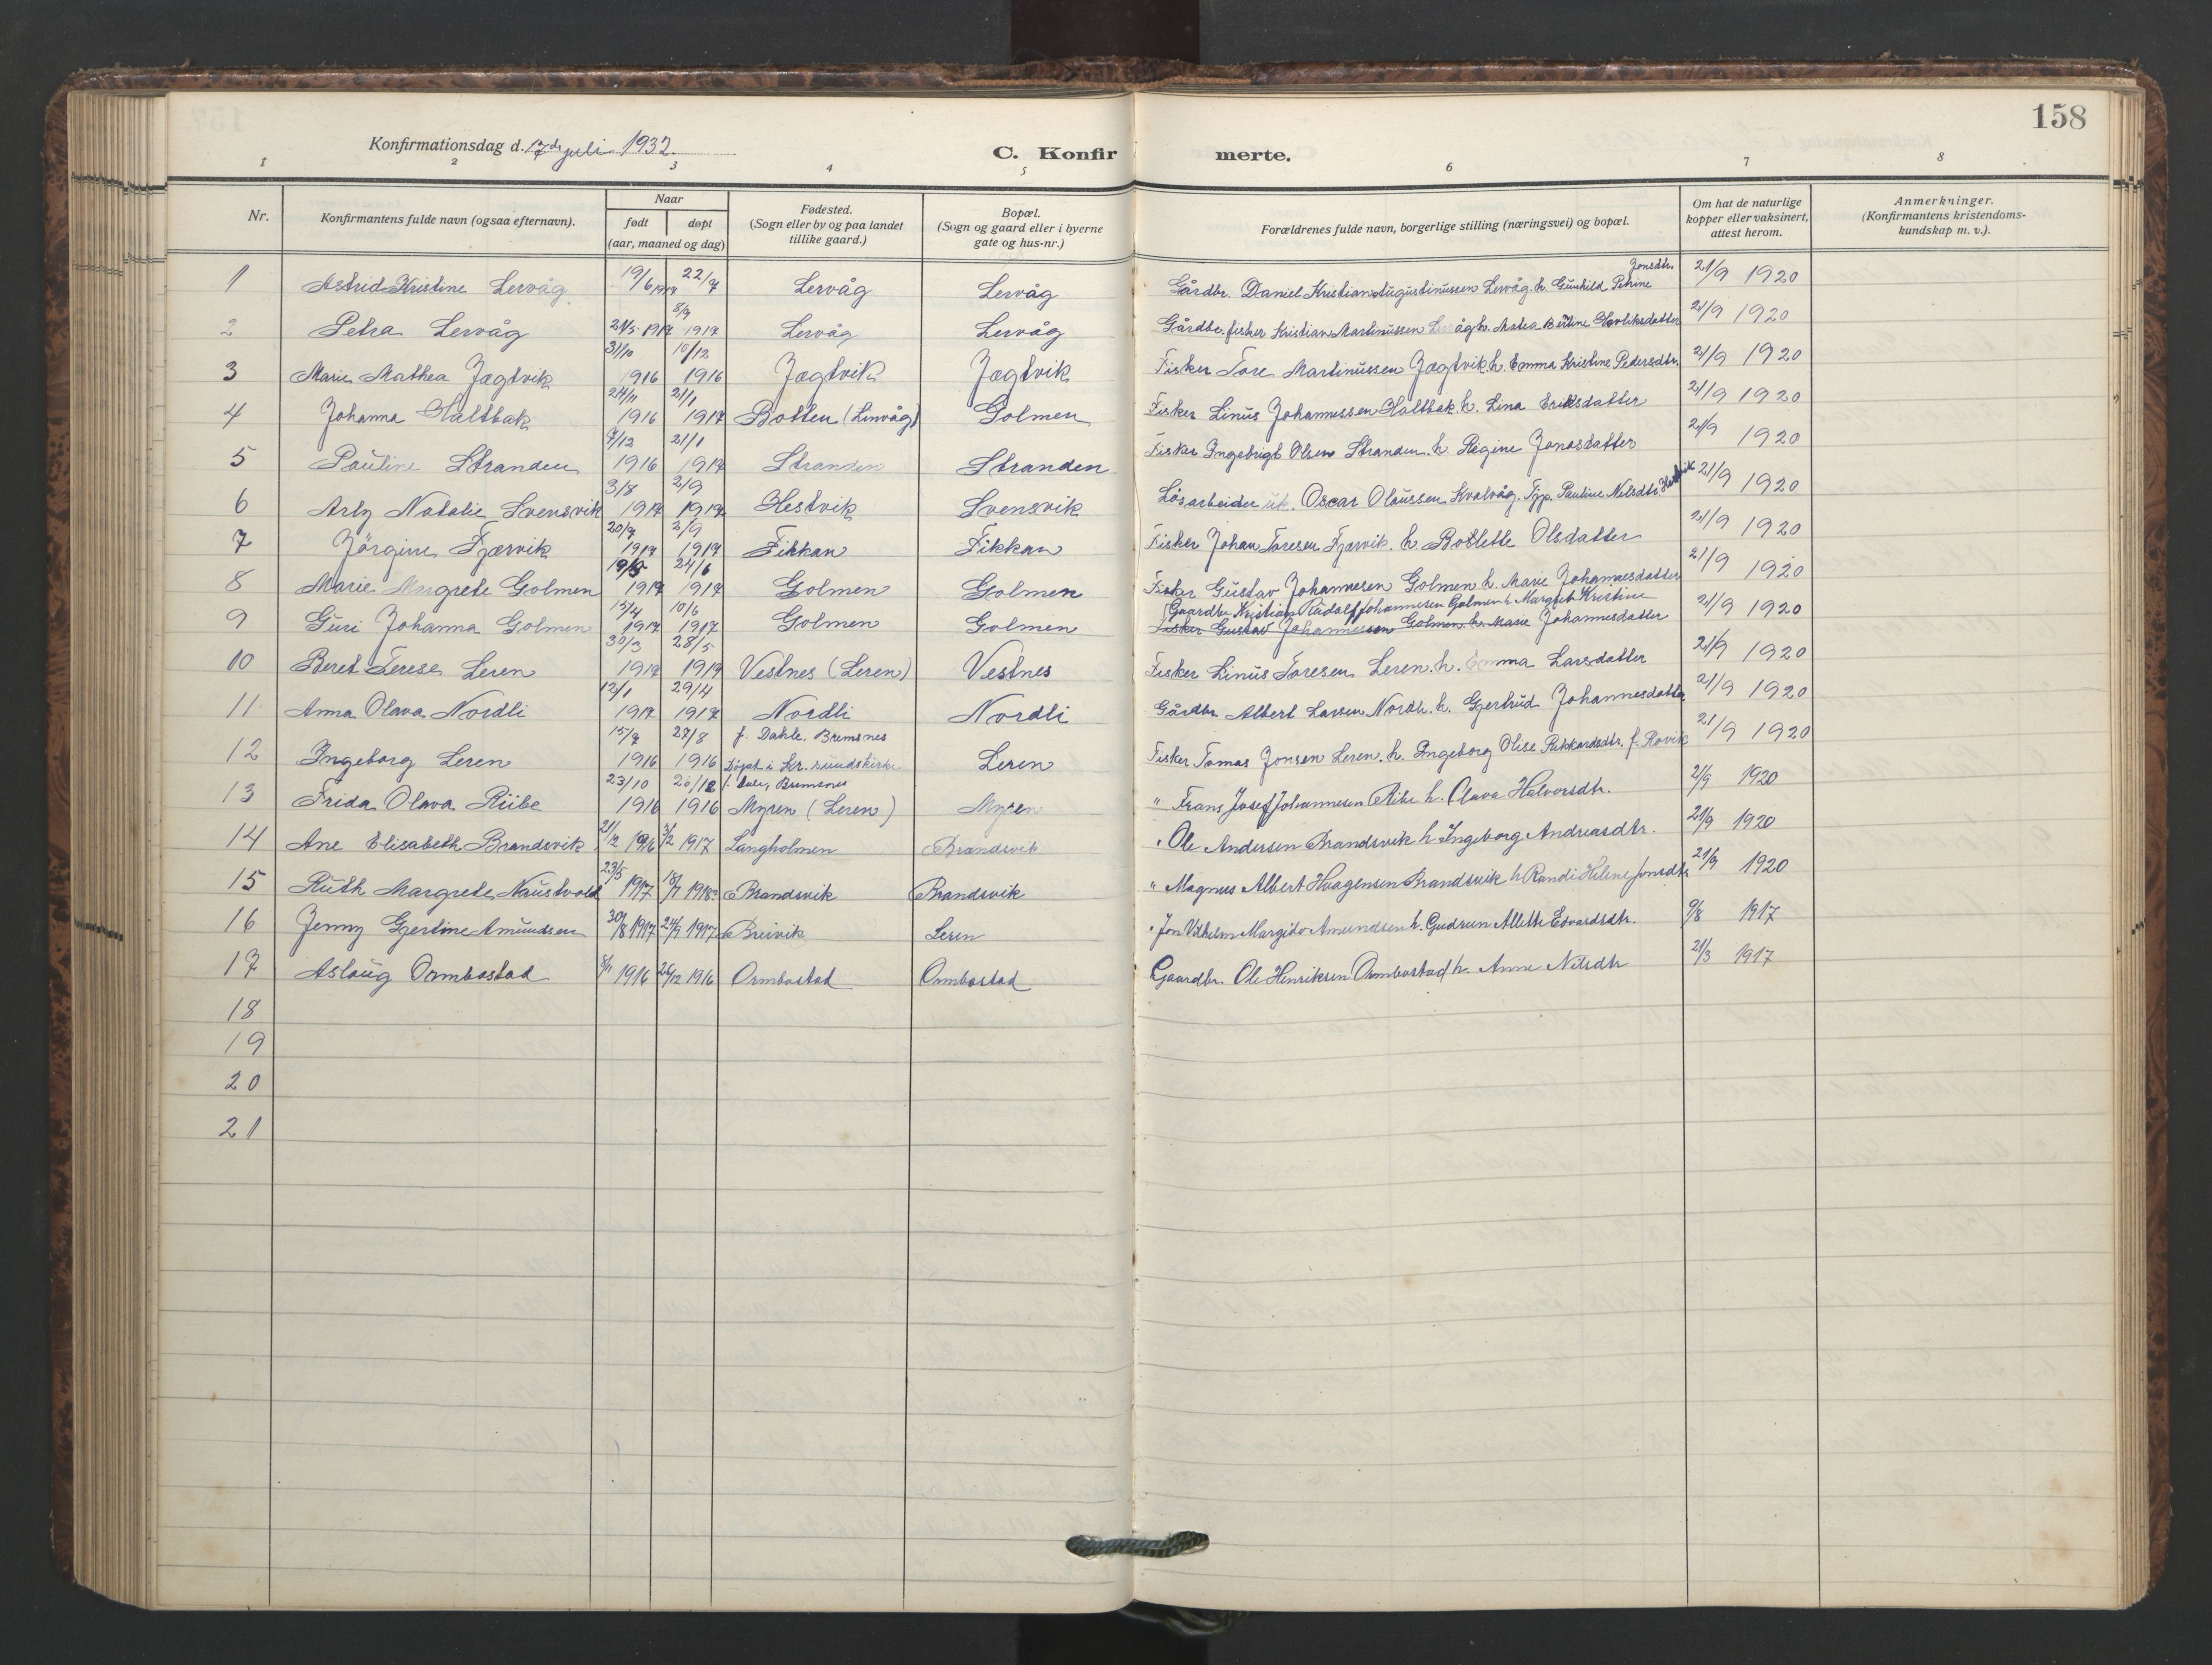 158
Konfirmationsdag d. 17de juli 1932.
C. Konfirmerte.
1 2 3 4 5 6 7 8
Nr.
Konfirmantens fulde navn (ogsaa efternavn).
Naar
født
døpt
(aar, maaned og dag)
Fødested.
(Sogn eller by og paa landet
tillike gaard.)
Bopæl.
(Sogn og gaard eller i byerne
gate og hus-nr.)
Forældrenes fulde navn, borgerlige stilling (næringsvei) og bopæl.
Om hat de naturlige
kopper eller vaksinert,
attest herom.
Anmerkninger.
(Konfirmantens kristendoms-
kundskap m. v.).
1 Astrid Kristine Lervåg 19/6 1917 22/7 Lervåg Lervåg Gårdbr. Daniel Kristian Augustinussen Lervåg. h. Gunhild Petrine Jonsdtr. 21/9 1920
2 Petra Lervåg 21/5 1917 8/7 1917 Lervåg Lervåg Gårdbr. fisker Kristian Martinussen Lervåg h. Matea 21/9 1920
3 Marie Mathea Jægtvik 31/10 1916 10/12 1916 Jægtvik Jægtvik Fisker Tore Martinussen Jægtvik. h. Emma Kristine Pedersdtr. 21/9 1920
4 Johanna Holtbak 24/11 1916 21/1 1917 Botten (Linvåg) Golmen Fisker Linus Johannessen Holtbak. h. Lina Eriksdatter 21/9 1920
5 Pauline Stranden 7/12 1916 21/1 1917 Stranden Stranden Fisker Ingebrigt Olsen Stranden. h. Regine Jonasdatter 21/9 1920
6 Arly Natalie Svensvik 3/8 1917 2/9 1917 Hestvik Svensvik Løsarbeider uk. Oscar Olaussen Kvalvåg. Tjp. Pauline Nelsdtr Hestvik 21/9 1920
7 Jörgine Fjærvik 20/7 1917 2/9 1917 Fikkan Fikkan Fisker Johan Toresen Fjærvik. h. Botlette Olsdatter 21/9 1920
8 Marie Margrete Golmen 19/5 1917 24/6 1917 Golmen Golmen Fisker Gustav Johannesen Golmen h. Marie Johannesdatter 21/9 1920
9 Guri Johanna Golmen 15/4 1917 10/6 1917 Golmen Golmen Gaardbr Kristian Rudolf Johannesen Golmen h. Margret Kristine
Fisker Gustav Johannessen Golmen h. Marie Johannesdatter 21/9 1920
10 Beret Terese Leren 30/3 1917 28/5 1917 Vestnes (Leren) Vestnes Fisker Linus Toresen Leren. h. Emma Larsdatter 21/9 1920
11 Anna Olava Nordli 12/1 1917 29/4 1917 Nordli Nordli Gårdbr Albert Larsen Nordli. h. Gjertrud Johannesdatter 21/9 1920
12 Ingeborg Leren 15/7 1916 27/8 1916 f. Dahle, Bremsnes
Døpt i Kr. sundskirke Leren Fisker Tomas Jonsen Leren. h. Ingeborg Olise Rikkardsdtr. f. Røvik 21/9 1920
13 Frida Olava Ribe 23/10 1916 26/12 1916 f. Dale, Bremsnes
Myren (Leren) Myren " Frans Josef Johannesen Ribe h. Olava Halvorsdtr. 21/9 1920
14 Ane Elisabeth Brandsvik 21/12 1916 3/2 1917 Langholmen Brandsvik " Ole Andersen Brandsvik h Ingeborg Andreasdtr. 21/9 1920
15 Ruth Margrete Naustvold 23/5 1917 18/7 Brandsvik Brandsvik " Magnus Albert Haagensen Brandsvik h Randi Helene Jonsdtr 21/9 1920
16 Jenny Gjertine Amundsen 30/8 1917 24/9 1917 Breivik Leren " Jon Vilhelm Margido Amundsen h. Gudrun Allette Edvardsdtr. 9/8 1917
17 Aslaug Ormbostad 8/11 1916 26/12 1916 Ormbostad Ormbostad Gaardbr. Ole Henriksen Ormbostad h. Anne Nilsdtr 21/3 1917
18
19
20
21